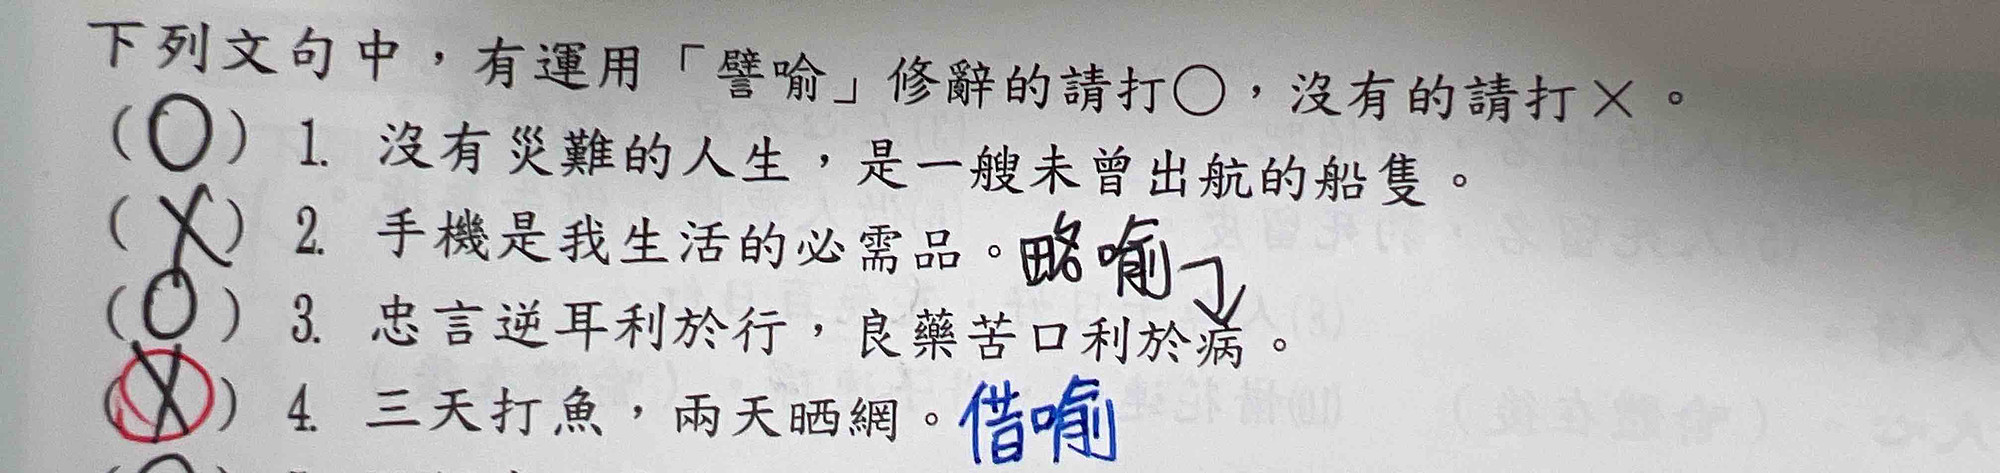 下列文句中，有運用「譬喻」修辭的請打○，沒有的請打×。
(O) 1. 沒有災難的人生，是一艘未曾出航的船隻。
(X) 2. 手機是我生活的必需品。略喻
(O) 3. 忠言逆耳利於行，良藥苦口利於病。
(X) 4. 三天打魚，兩天晒網。借喻